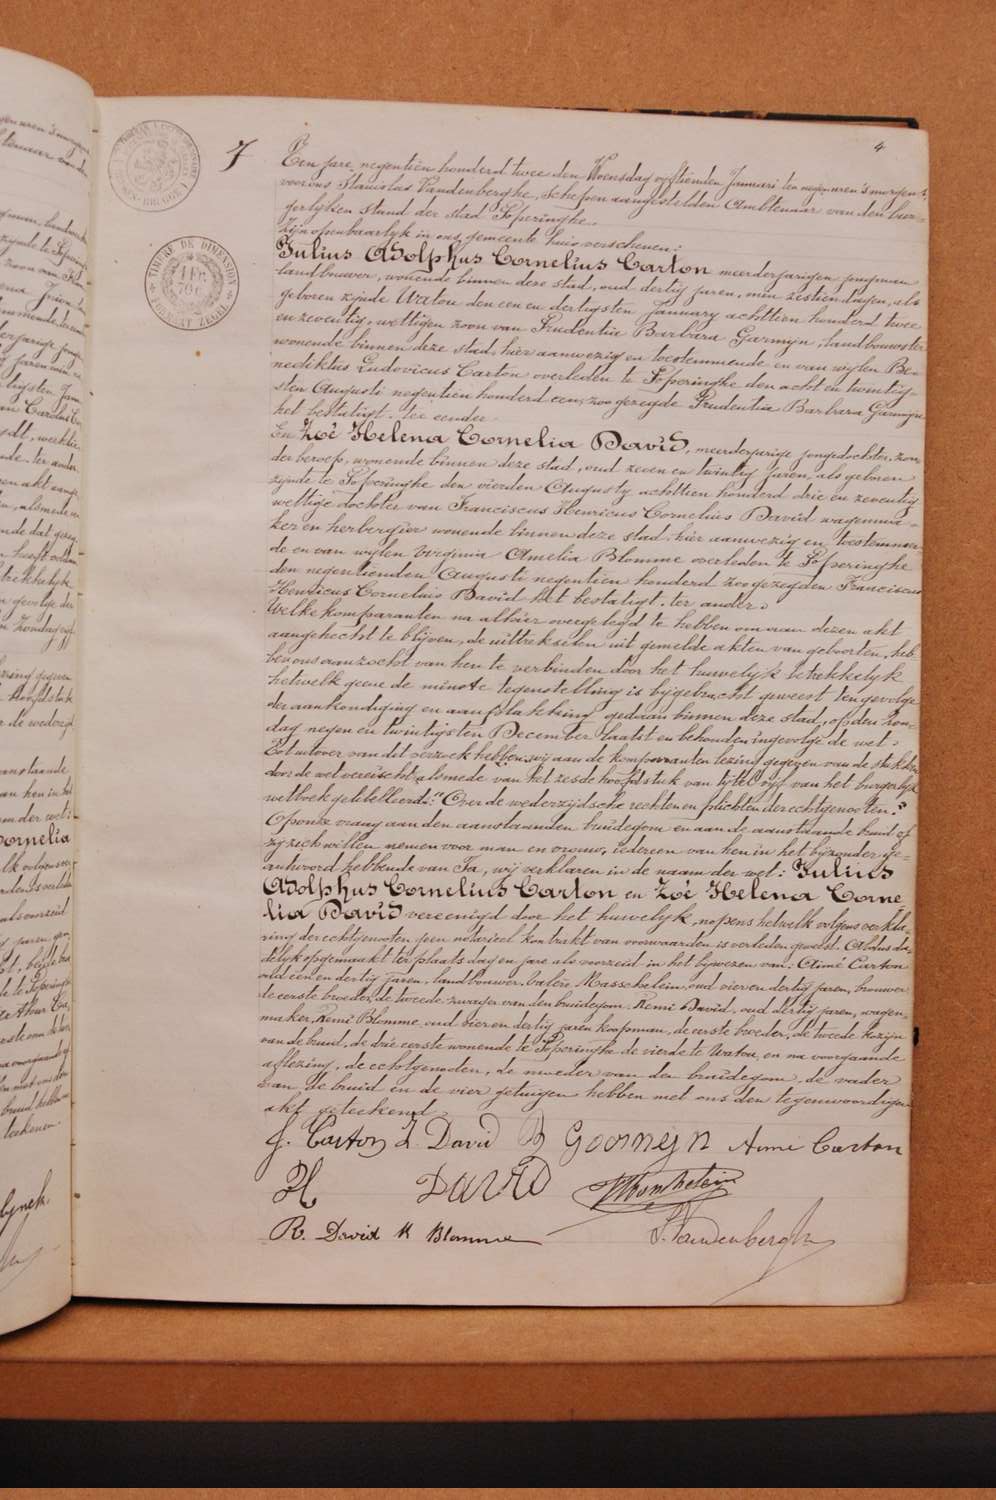 4
7
TIMBRE DE DIMENSION
1 FR
Een jare negentien honderd twee den Woensdag vyftienden Januari ten negen uren 's morgens,
voor ons Stanislas Vandenberghe, Schepen aangestelden Ambtenaar van den bur-
gerlyken stand der stad Poperinghe
Zyn openbaarlyk in ons gemeente huis verschenen:
Julius Adolphus Cornelius Carton meerderjarigen jongman
landbouwer, wonende binnen deze stad, oud dertig jaren, min zestien dagen, als
geboren zynde Watou den een en dertigsten January achttien honderd twee
en zeventig, wettigen zoon van Prudentia Barbara Garmyn, landbouwster
wonende binnen deze stad, hier aanwezig en toestemmende en van wylen Be-
nediktus Ludovicus Carton overleden te Poperinghe den acht en twintig-
sten Augusti negentien honderd een, zoo gezegde Prudentia Barbara Garmyn
het bestatigt. ter eender
En Zoë Helena Cornelia David, meerderjarige jongedochter, zon-
der beroep, wonende binnen deze stad, oud zeven en twintig jaren, als geboren
zynde te Poperinghe den vierden Augusty achttien honderd drie en zeventig
wettige dochter van Franciscus Henricus Cornelius David wagenma-
ker en herbergier wonende binnen deze stad, hier aanwezig en toestemmen-
de en van wylen Virginia Amelia Blomme overleden te Poperinghe
den negentienden Augusti negentien honderd zoo gezegden Franciscus
Henricus Cornelius David het bestatigt. ter ander.
Welke komparanten na alhier overgelegd te hebben om aan dezen akt
aangehecht te blyven, de uittrekselen uit gemelde akten van geboorten, heb-
ben ons aanzocht van hen te verbinden door het huwelyk betrekkelyk
hetwelk geene de minste tegenstelling is bygebracht geweest ten gevolge
der aankondiging en aanplakking gedaan binnen deze stad, op den Zon-
dag negen en twintigsten December laatst en behouden ingevolge de wet.
Tot uitvoer van dit verzoek hebben wy aan de komparanten lezing gegeven van de stukken
door de wet vereischt, alsmede van het zesde hoofdstuk van tytel vyf van het burgerlyk
wetboek getitelleerd: "Over de wederzydsche rechten en plichten der echtgenooten."
Op onze vraag aan den aanstaanden bruidegom en aan de aanstaande bruid of
zy zich willen nemen voor man en vrouw, iedereen van hen in het byzonder ge-
antwoord hebbende van Ja, wy verklaren in de naam der wet: Julius
Adolphus Cornelius Carton en Zoë Helena Corne-
lia David vereenigd door het huwelyk, nopens hetwelk volgens verkla-
ring der echtgenooten geen notarieel kontrakt van voorwaarden is verleden geweest. Aldus da-
delyk opgemaakt ter plaats dag en jare als voorzeid in het bywezen van: Aimé Carton
oud een en dertig jaren, landbouwer, Valère Masschelein, oud vier en dertig jaren, brouwer
de eerste broeder, de tweede zwager van den bruidegom Remi David, oud dertig jaren, wagen-
maker, Remi Blomme, oud vier en dertig jaren koopman, de eerste broeder, de tweede kozyn
van de bruid, de drie eerste wonende te Poperinghe de vierde te Watou, en na voorgaande
aflezing, de echtgenoten, de moeder van den bruidegom, de vader
van de bruid en de vier getuigen hebben met ons den tegenwoordigen
akt geteekend
J. Carton Z. David B Goormeyn Aimé Carton
H David
R. David R Blomme S. Vandenberghe